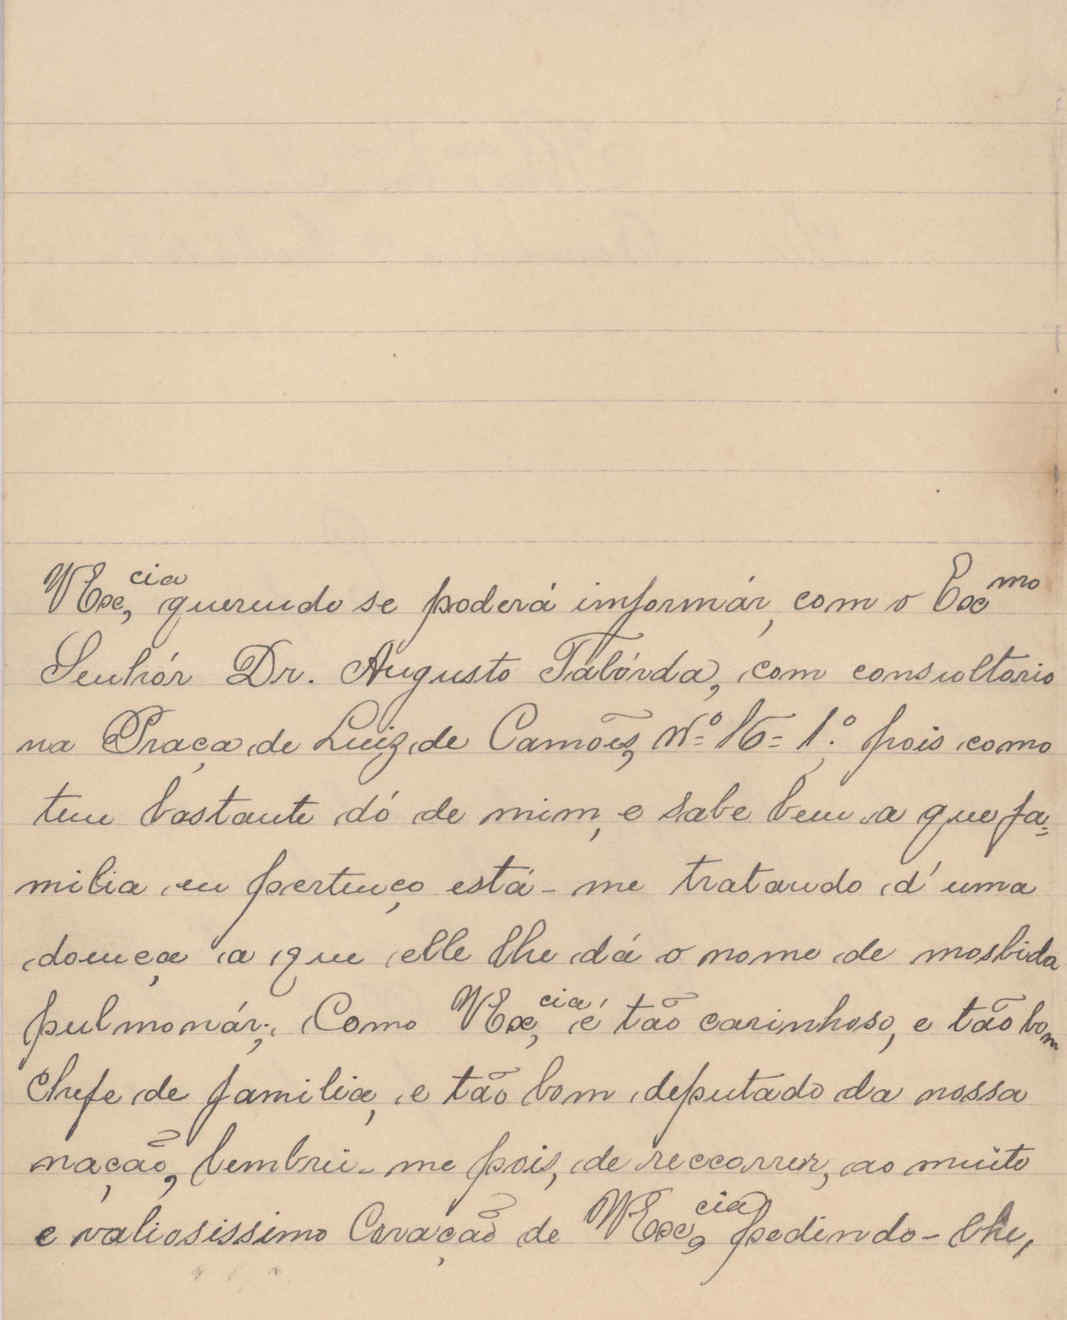 VEx,cia querendo se poderá informár, com o Excmo
Senhór Dr. Augusto Tabórda, com consultorio
na Praça de Luiz de Camões, Nº= 16= 1º. pois como
tem bastante dó de mim, e sabe bem a que fa=
milia eu pertenço está-me tratando d'uma
doença a que elle lhe dá o nome de mosbida
pulmonár;, Como VEx,cia é tão carinhoso, e tão bom
Chefe de familia, e tão bom deputado da nossa
nação, lembrei-me pois, de reccorrer, ao muito
e valiosissimo Coração de VExc,cia pedindo-lhe,